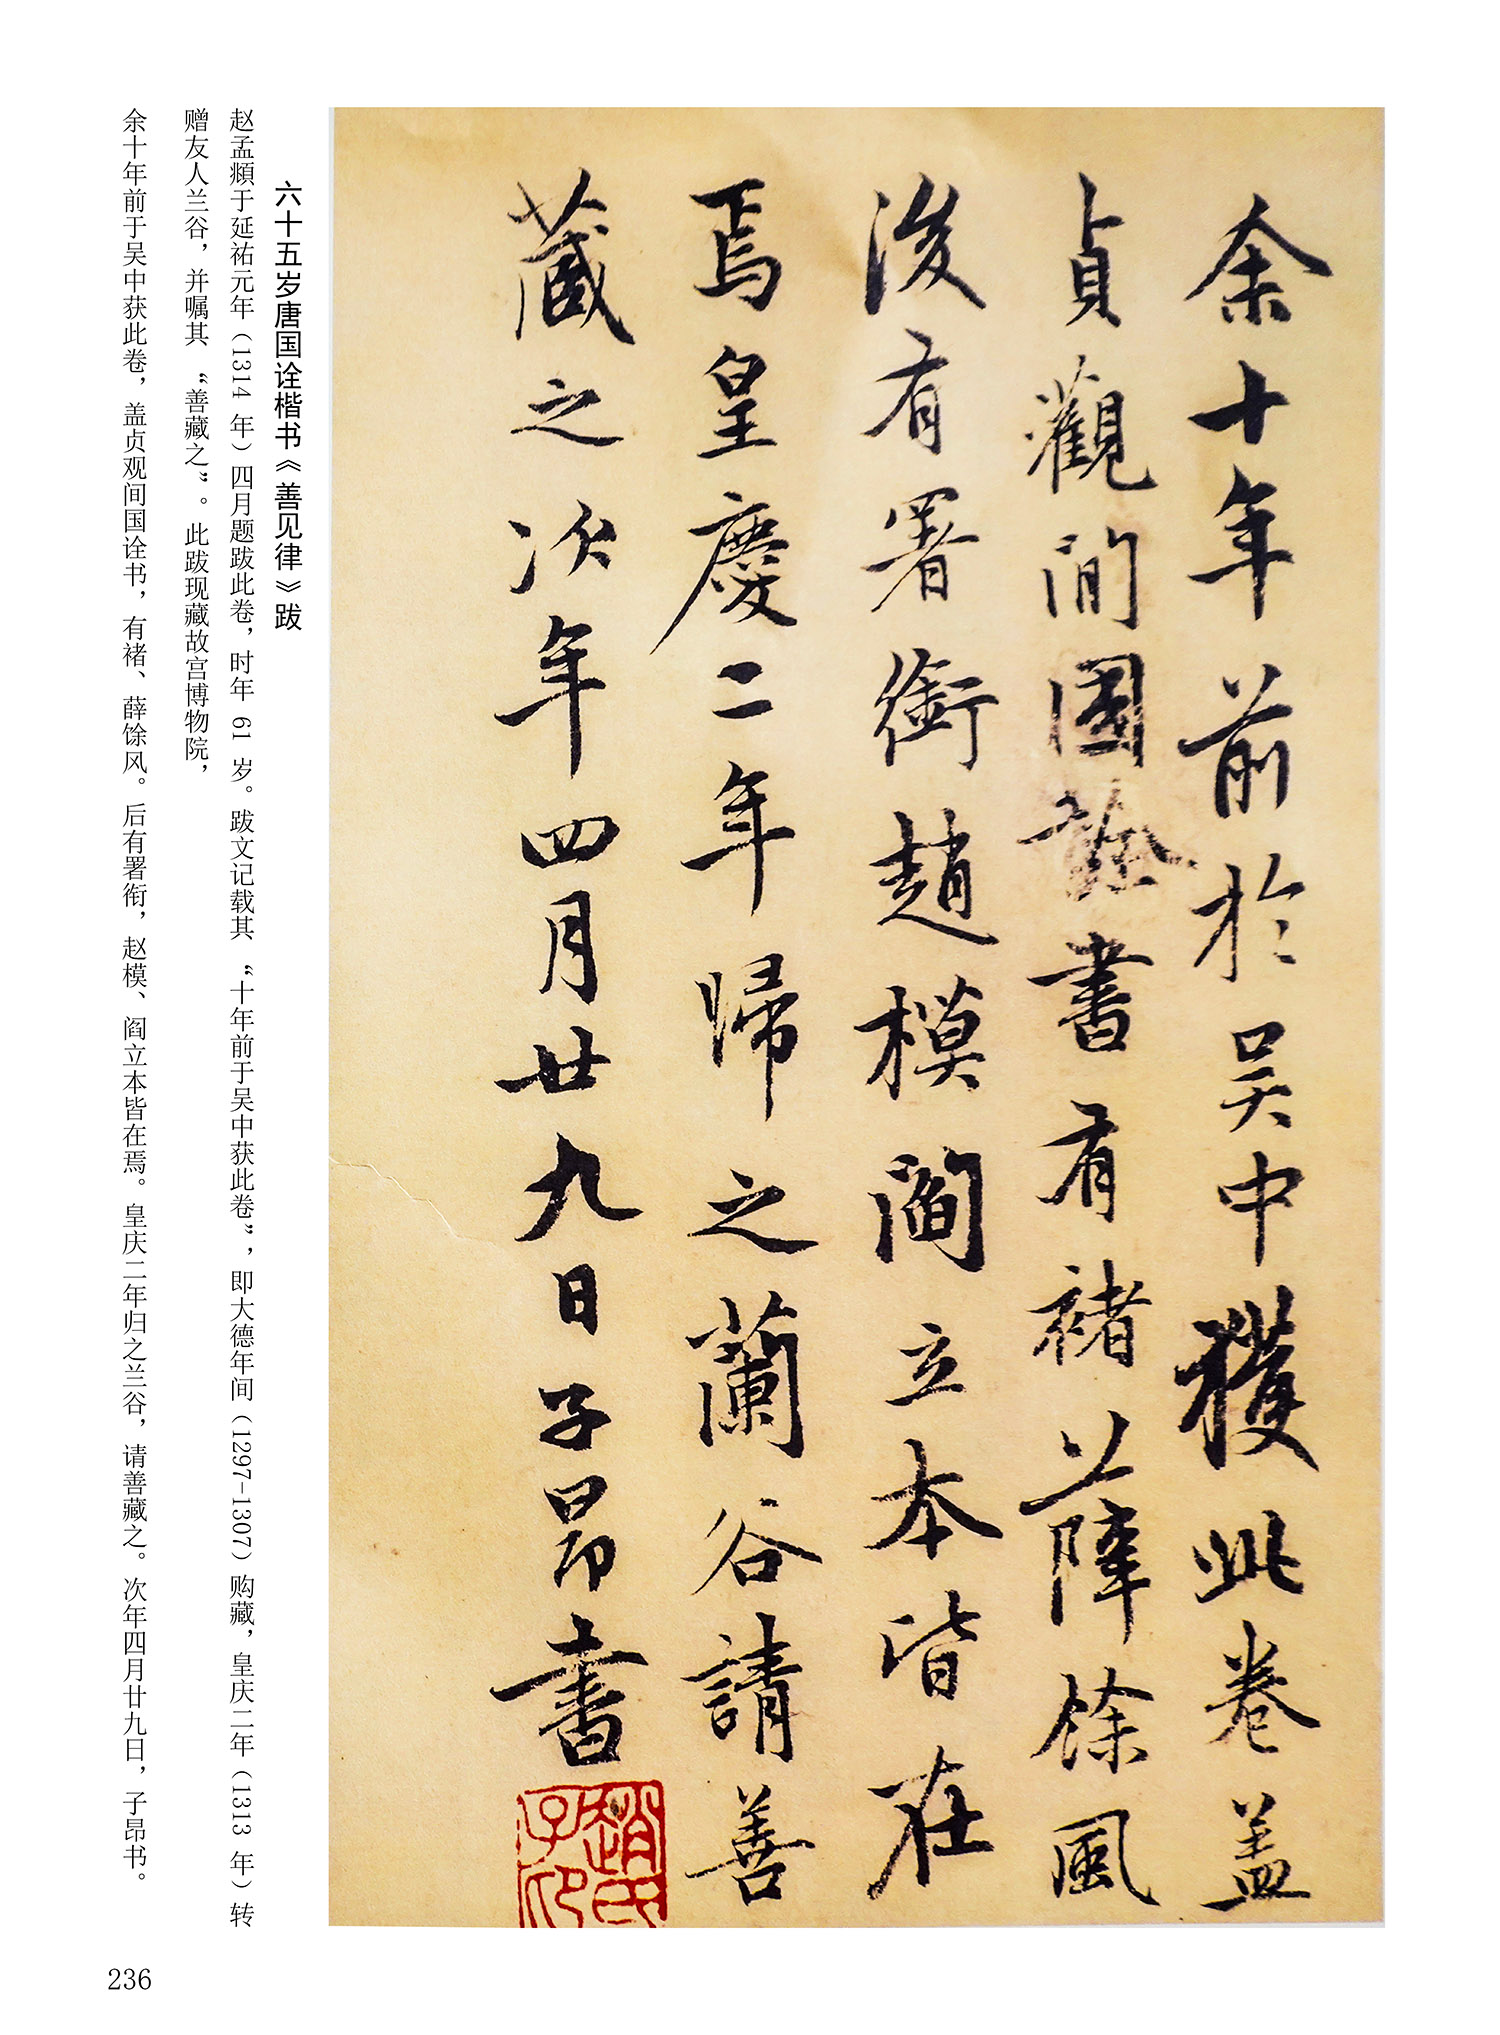 余十年前於吴中穫此卷盖
貞觀間國詮書有褚薛餘風
後有署銜趙模閻立本皆在
焉皇慶二年歸之蘭谷請善
藏之次年四月廿九日子昂書
趙氏子印
六十五岁唐国诠楷书《善见律》跋
赵孟頫于延祐元年(1314 年)四月题跋此卷，时年 61 岁。跋文记载其 “十年前于吴中获此卷”，即大德年间(1297-1307)购藏，皇庆二年(1313 年)转
赠友人兰谷，并嘱其 “善藏之”。此跋现藏故宫博物院，
余十年前于吴中获此卷，盖贞观间国诠书，有褚、薛馀风。后有署衔，赵模、阎立本皆在焉。皇庆二年归之兰谷，请善藏之。次年四月廿九日，子昂书。
236